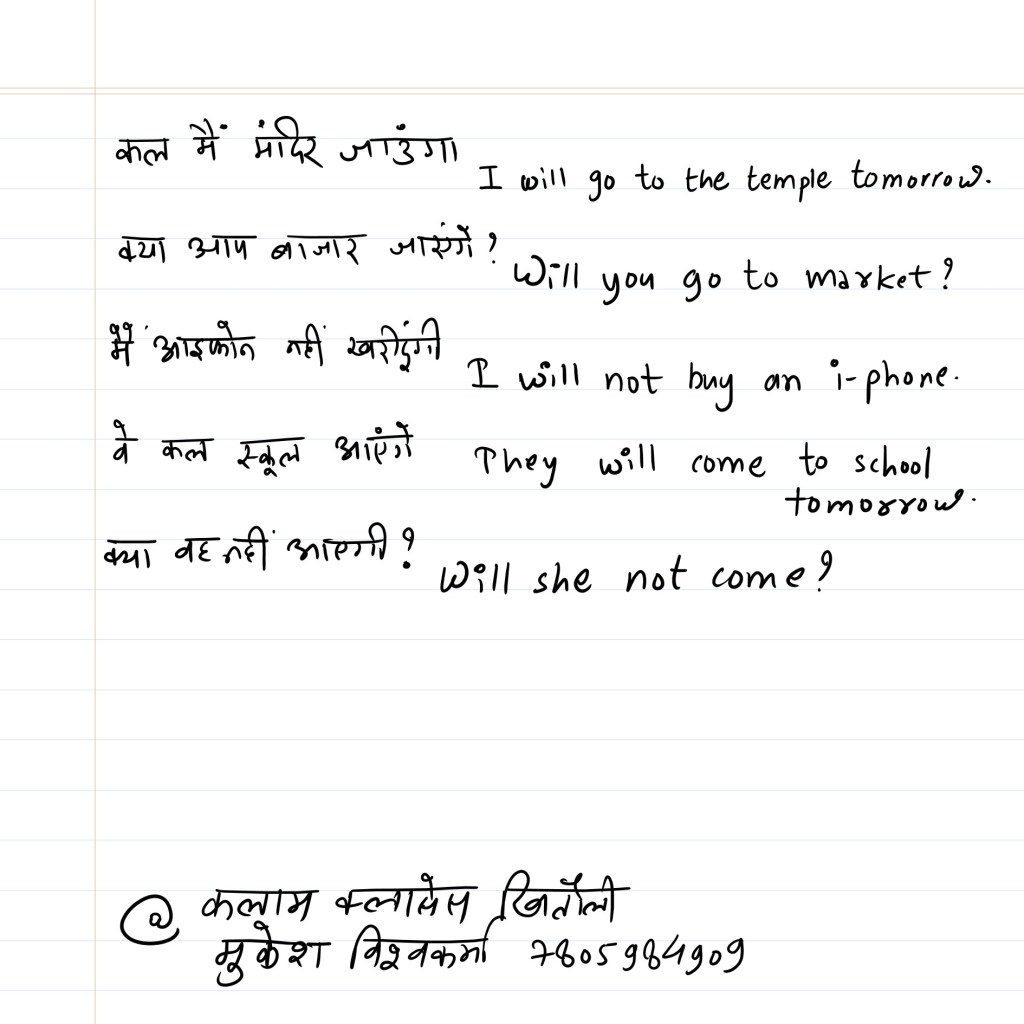 कल मैं मंदिर जाउंगा
I will go to the temple tomorrow.
क्या आप बाजार जाएंगे?
Will you go to market?
मैं आइफोन नहीं खरीदूंगी
I will not buy an i-phone.
वे कल स्कूल आएंगे
They will come to school
tomorrow.
क्या वह नहीं आएगी?
Will she not come?
@ कलाम क्लासेस खितौली
मुकेश विश्वकर्मा 7805984909